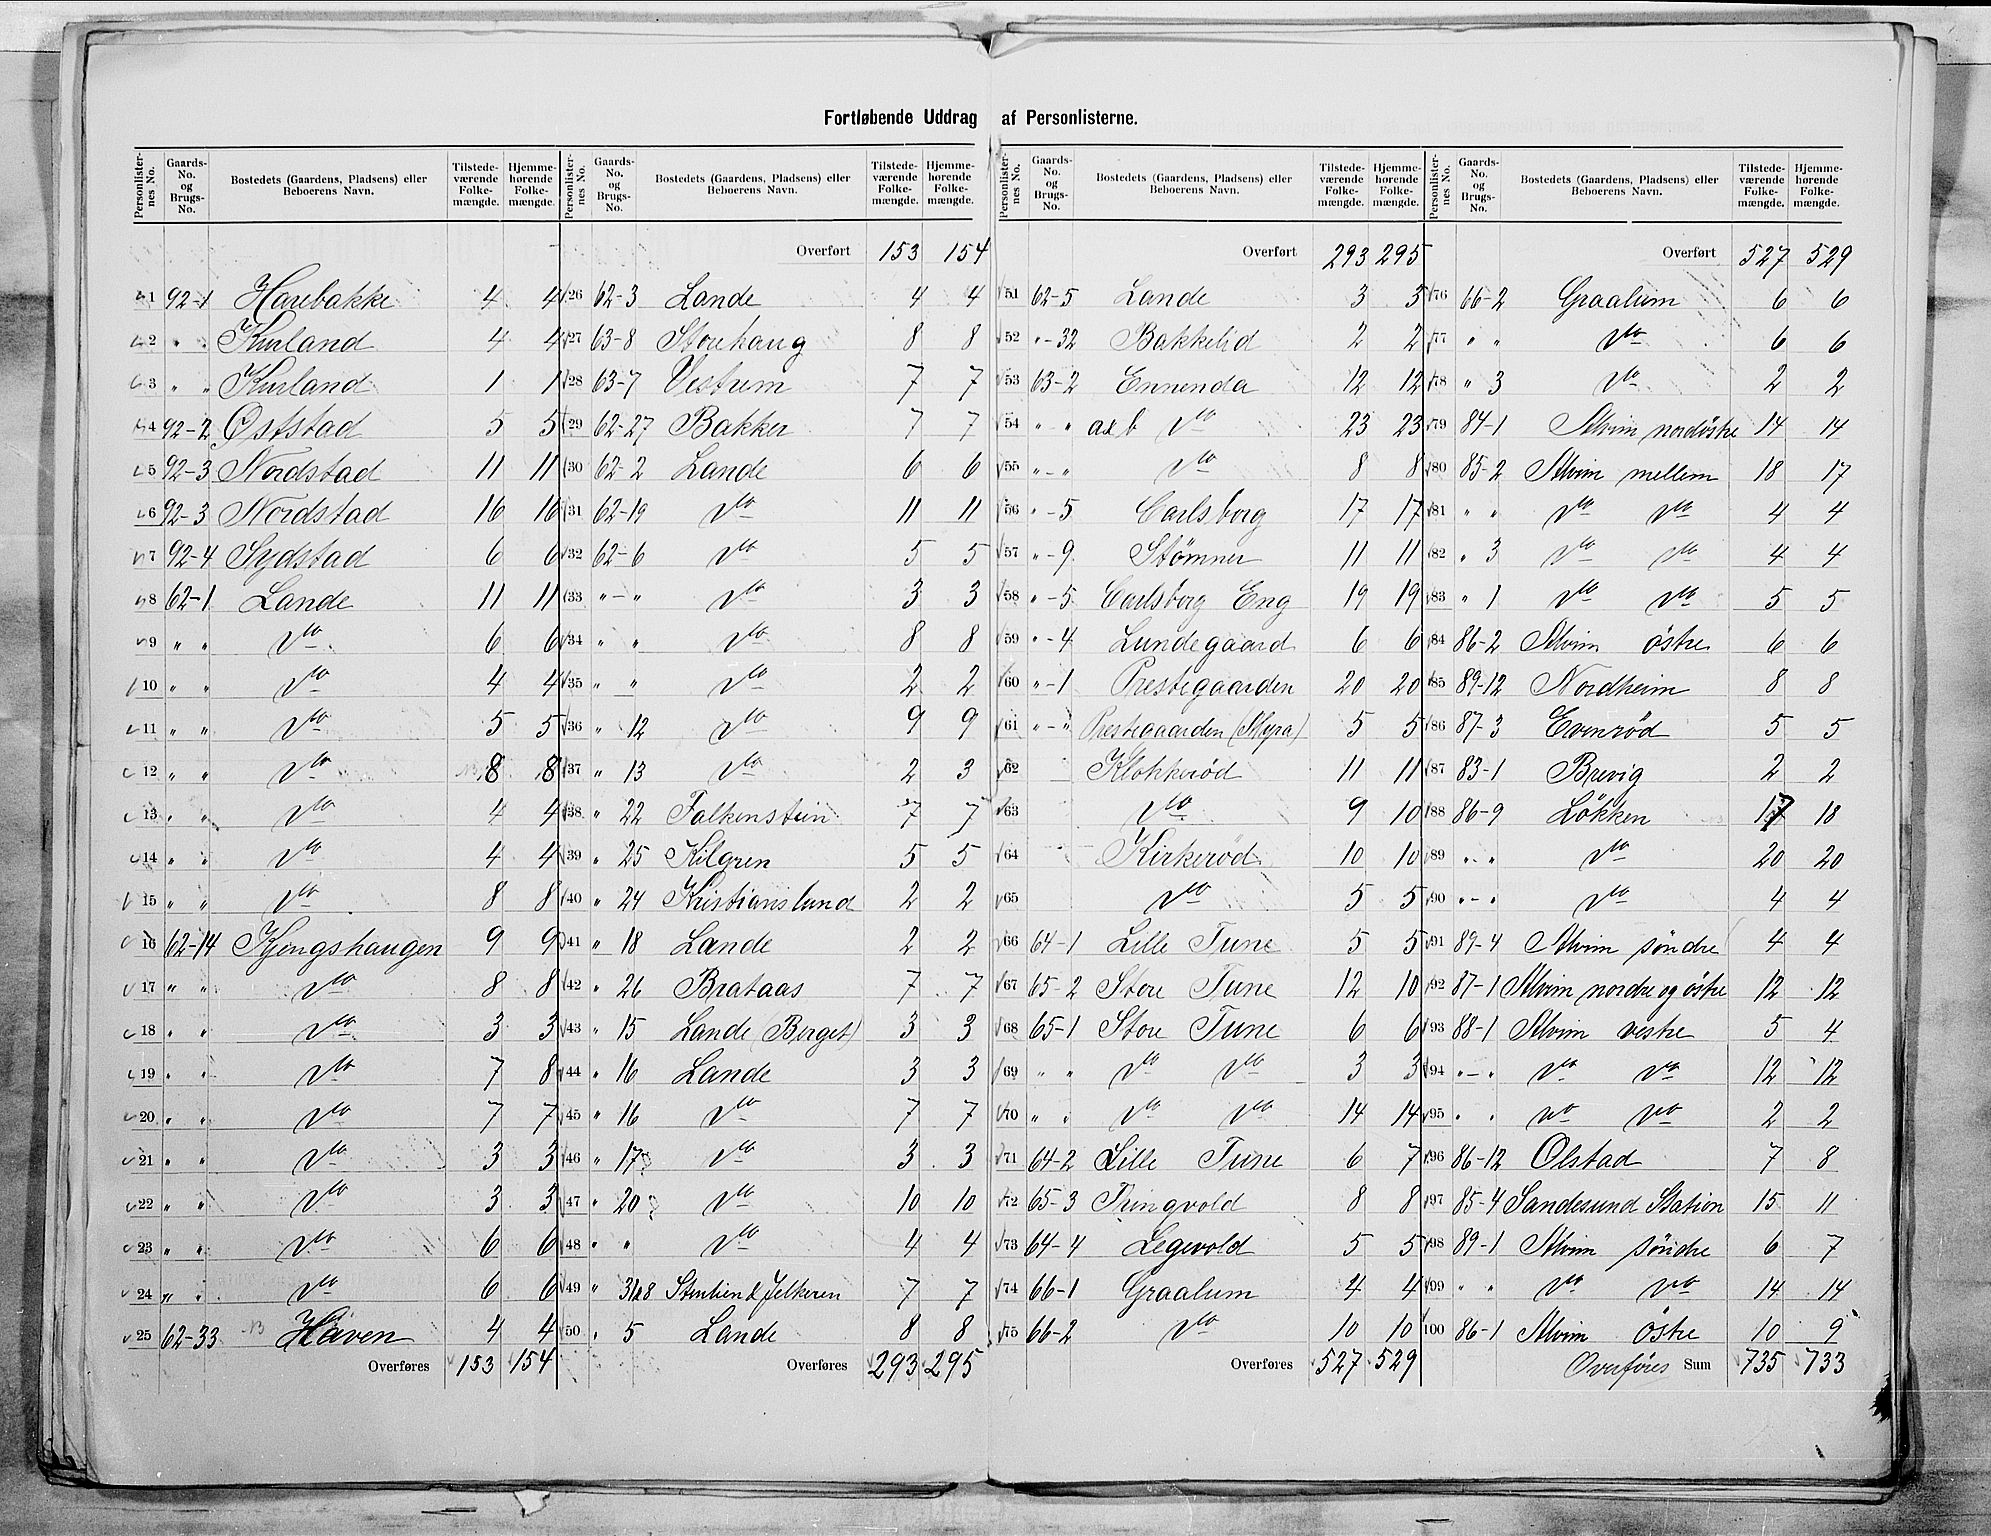 Fortløbende Uddrag af Personlisterne.
Personlisternes No. Gaards-No. og Brugs-No. Bostedets (Gaardens, Pladsens) eller Beboerens Navn. Tilstedeværende Folkemængde. Hjemmehørende Folkemængde.
1 92-1 Harebakke 4 4
2 " " Kurland 4 4
3 " " Kurland 1 1
4 92-2 Øststad 5 5
5 92-3 Nordstad 11 11
6 92-3 Nordstad 16 16
7 92-4 Sydstad 6 6
8 62-1 Lande 11 11
9 " " Do 6 6
10 " " Do 4 4
11 " " Do 5 5
12 " " Do 8 8
13 " " Do 4 4
14 " " Do 4 4
15 " " Do 8 8
16 62-14 Kongshaugen 9 9
17 " " Do 8 8
18 " " Do 3 3
19 " " Do 7 8
20 " " Do 7 7
21 " " Do 3 3
22 " " Do 3 3
23 " " Do 6 6
24 " " Do 6 6
25 62-33 Haven 4 4
Overføres 153 154
Personlisternes No. Gaards-No. og Brugs-No. Bostedets (Gaardens, Pladsens) eller Beboerens Navn. Tilstedeværende Folkemængde. Hjemmehørende Folkemængde.
Overført 153 154
26 62-3 Lande 4 4
27 63-8 Storhaug 8 8
28 63-7 Vestrem 7 7
29 62-27 Bakker 7 7
30 62-2 Lande 6 6
31 62-19 Do 11 11
32 62-6 Do 5 5
33 "-" Do 3 3
34 " " Do 8 8
35 " " Do 2 2
36 " 12 Do 9 9
37 " 13 Do 2 3
38 " 22 Falkenstein 7 7
39 " 25 Kilgren 5 5
40 " 24 Kristianslund 2 2
41 " 18 Lande 2 2
42 " 26 Brataas 7 7
43 " 15 Lande (Berget) 3 3
44 " 16 Lande 3 3
45 " 16 Do 7 7
46 " 17 Do 3 3
47 " 20 Do 10 10
48 " " Do 4 4
49 " 7 7
50 " 5 Lande 8 8
Overføres 293 295
Personlisternes No. Gaards-No. og Brugs-No. Bostedets (Gaardens, Pladsens) eller Beboerens Navn. Tilstedeværende Folkemængde. Hjemmehørende Folkemængde.
Overført 293 295
51 62-5 Lande 3 3
52 "-32 Bakkelid 2 2
53 63-2 Ennenda 12 12
54 " " a&b Do 23 23
55 "-" Do 8 8
56 "-5 Carlsborg 17 17
57 "-9 Stømner 11 11
58 "-5 Carlsborg Eng 19 19
59 "-4 Lundegaard 6 6
60 "-1 Prestegaarden 20 20
61 "-" Prestegaarden (Myra) 5 5
62 Klokkerød 11 11
63 Do 9 10
64 Kirkerød 10 10
65 Do 5 5
66 64-1 Lille Tune 5 5
67 65-2 Store Tune 12 10
68 65-1 Store Tune 6 6
69 " " Do Do 3 3
70 " " Do Do 14 14
71 64-2 Lille Tune 6 7
72 65-3 Tingvold 8 8
73 64-4 Legevold 5 5
74 66-1 Graalum 4 4
75 66-2 Do 10 10
Overføres 527 529
Personlisternes No. Gaards-No. og Brugs-No. Bostedets (Gaardens, Pladsens) eller Beboerens Navn. Tilstedeværende Folkemængde. Hjemmehørende Folkemængde.
Overført 527 529
76 66-2 Graalum 6 6
77 " " Do 6 6
78 " 3 Do 2 2
79 84-1 Alvim nordöstre 14 14
80 85-2 Alvim mellem 18 17
81 " " Do Do 4 4
82 " 3 Do Do 4 4
83 " 1 Do Do 5 5
84 86-2 Alvim östre 6 6
85 89-12 Nordheim 8 8
86 87-3 Evenrød 5 5
87 83-1 Brevig 2 2
88 86-9 Lökken 17 18
89 " " Do 20 20
90 "-" Do 4 4
91 89-4 Alvim söndre 4 4
92 87-1 Alvim nordre og östre 12 12
93 88-1 Alvim vestre 5 4
94 "-" Do Do 12 12
95 " " Do Do 2 2
96 86-12 Olstad 7 8
97 85-4 Sandesund Station 15 11
98 89-1 Alvim söndre 6 7
99 " " Do Do 14 14
100 86-1 Alvim östre 10 9
Overføres Sum 735 733